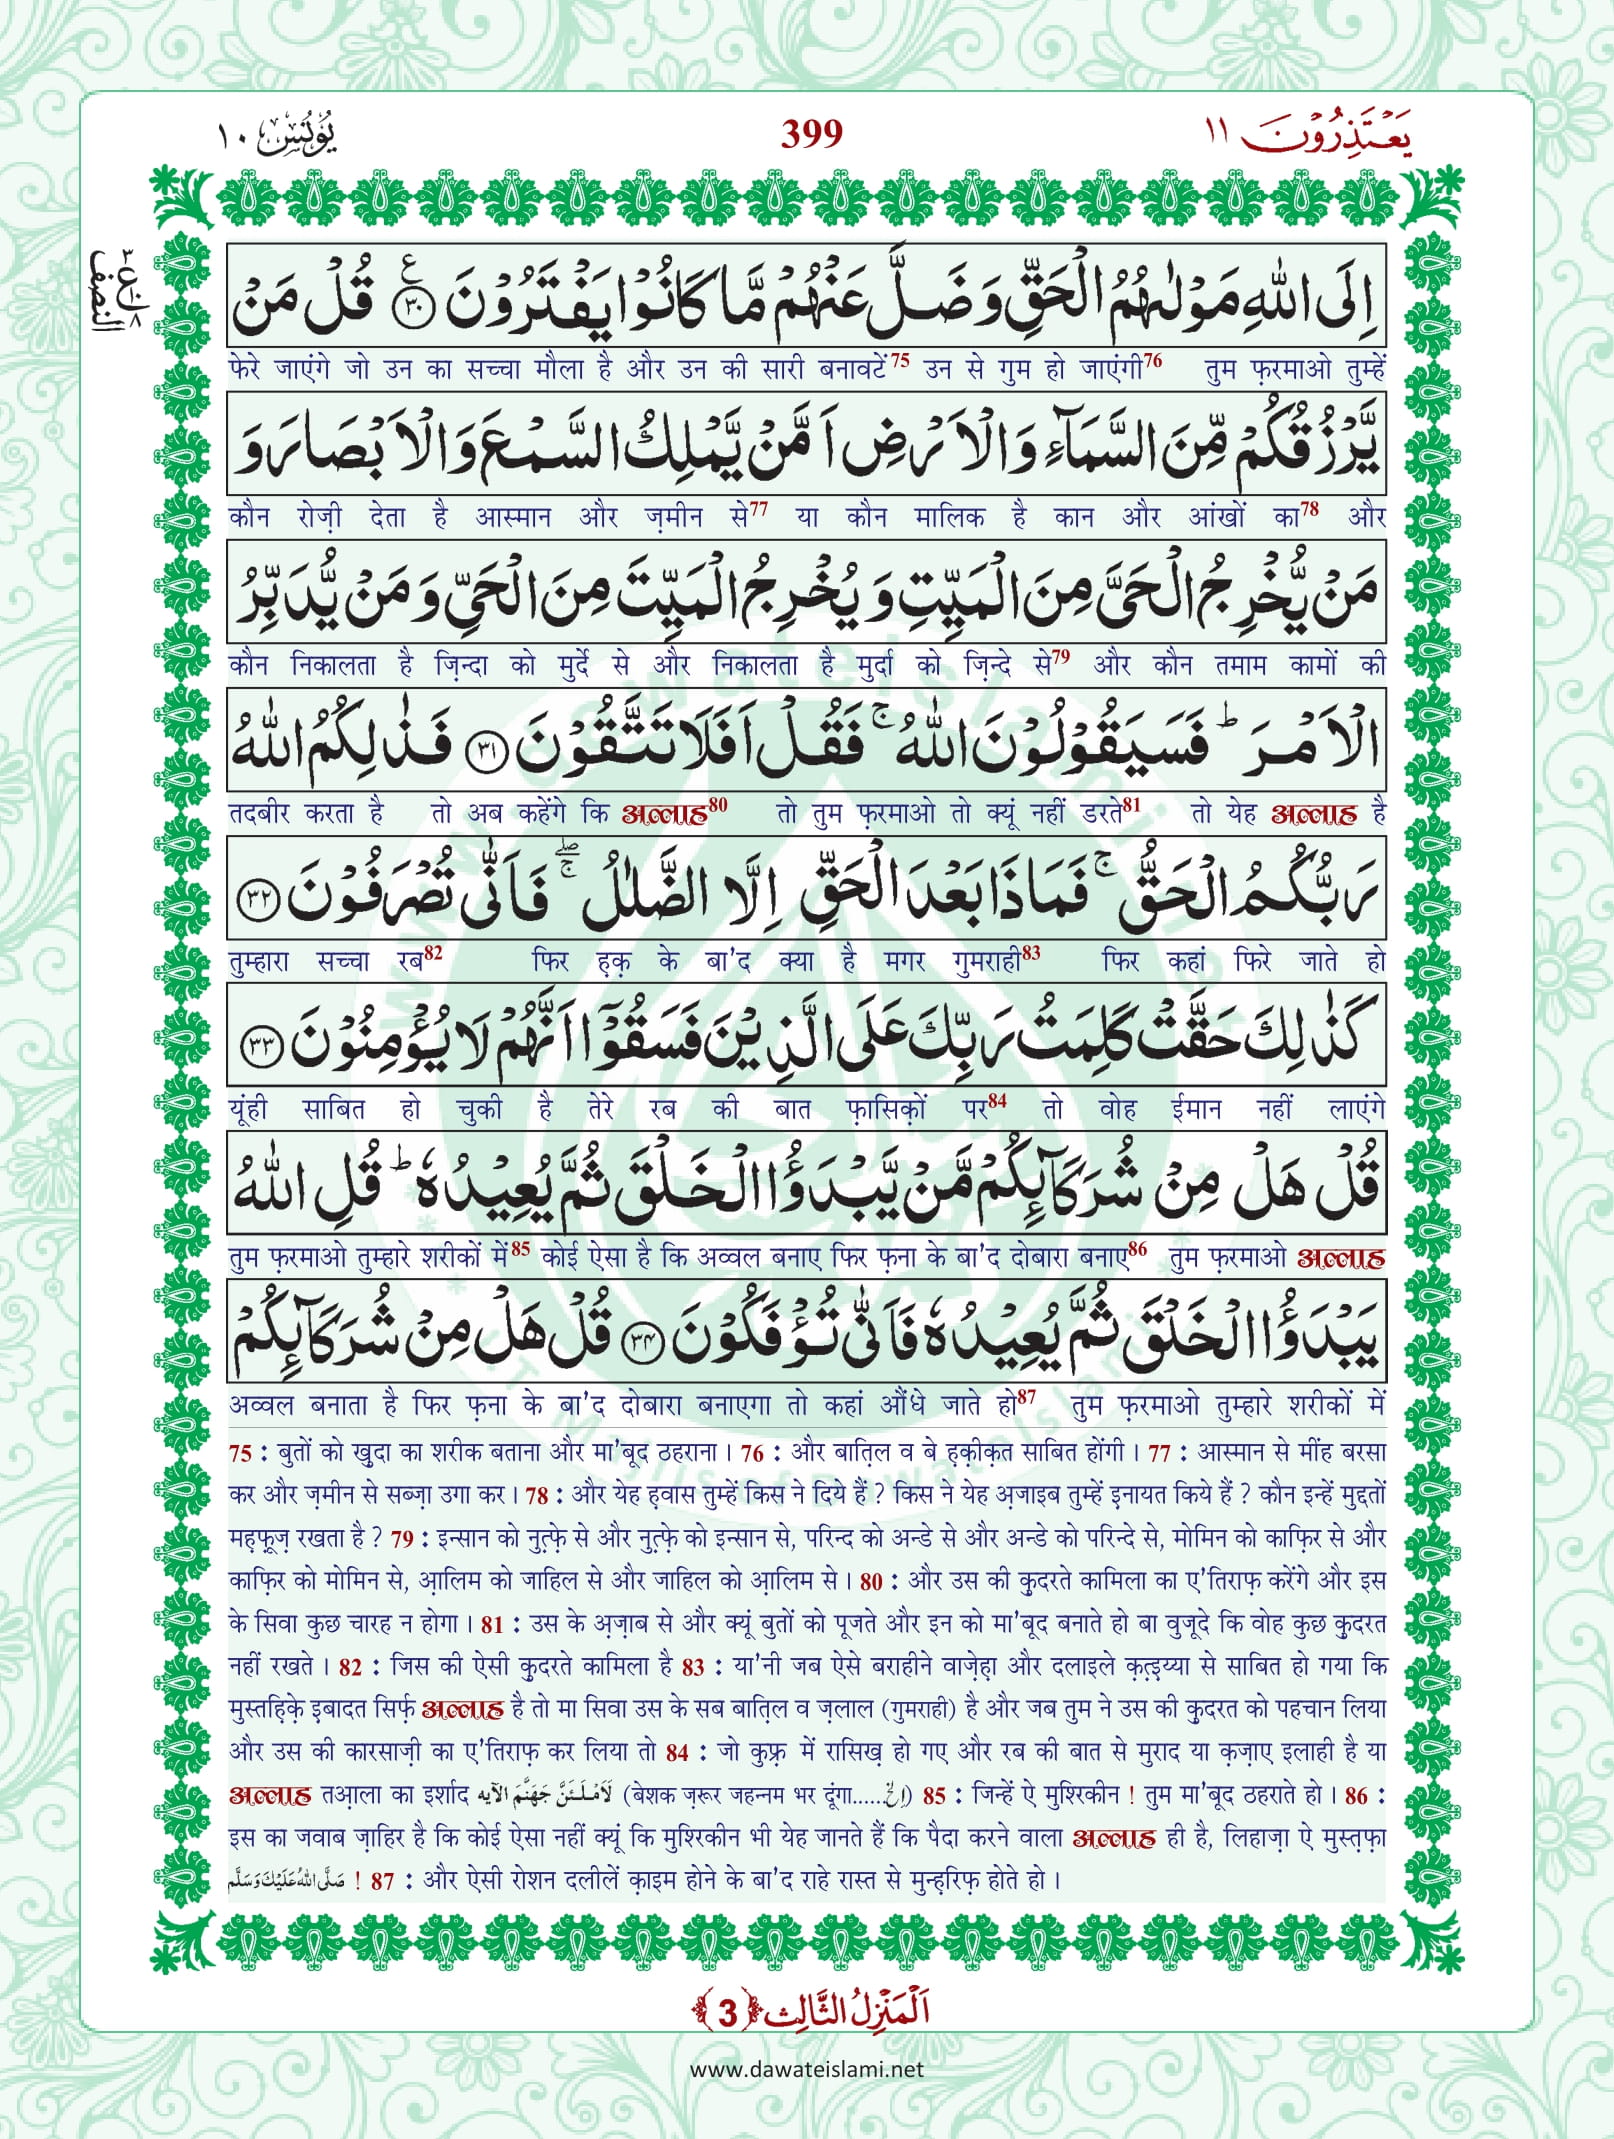 یَعْتَذِرُوْنَ ۱۱
399
یُوْنُس ۱۰
النصف
اِلَى اللّٰهِ مَوْلٰىهُمُ الْحَقِّ وَ ضَلَّ عَنْهُمْ مَّا كَانُوْا یَفْتَرُوْنَ۠ ﴿۳۰﴾ قُلْ مَنْ
फेरे जाएंगे जो उन का सच्चा मौला है और उन की सारी बनावटें75 उन से गुम हो जाएंगी76 तुम फ़रमाओ तुम्हें
یَّرْزُقُكُمْ مِّنَ السَّمَآءِ وَ الْاَرْضِ اَمَّنْ یَّمْلِكُ السَّمْعَ وَ الْاَبْصَارَ وَ
कौन रोज़ी देता है आस्मान और ज़मीन से77 या कौन मालिक है कान और आंखों का78 और
مَنْ یُّخْرِجُ الْحَیَّ مِنَ الْمَیِّتِ وَ یُخْرِجُ الْمَیِّتَ مِنَ الْحَیِّ وَ مَنْ یُّدَبِّرُ
कौन निकालता है ज़िन्दा को मुर्दे से और निकालता है मुर्दा को ज़िन्दे से79 और कौन तमाम कामों की
الْاَمْرَؕ فَسَیَقُوْلُوْنَ اللّٰهُۚ فَقُلْ اَفَلَا تَتَّقُوْنَ ﴿۳۱﴾ فَذٰلِكُمُ اللّٰهُ
तदबीर करता है तो अब कहेंगे कि अल्लाह80 तो तुम फ़रमाओ तो क्यूं नहीं डरते81 तो येह अल्लाह है
رَبُّكُمُ الْحَقُّۚ فَمَا ذَا بَعْدَ الْحَقِّ اِلَّا الضَّلٰلُ ۚۖ فَاَنّٰى تُصْرَفُوْنَ ﴿۳۲﴾
तुम्हारा सच्चा रब82 फिर ह़क़ के बा'द क्या है मगर गुमराही83 फिर कहां फिरे जाते हो
كَذٰلِكَ حَقَّتْ كَلِمَتُ رَبِّكَ عَلَى الَّذِیْنَ فَسَقُوْۤا اَنَّهُمْ لَا یُؤْمِنُوْنَ ﴿۳۳﴾
यूंही साबित हो चुकी है तेरे रब की बात फ़ासिक़ों पर84 तो वोह ईमान नहीं लाएंगे
قُلْ هَلْ مِنْ شُرَكَآىِٕكُمْ مَّنْ یَّبْدَؤُا الْخَلْقَ ثُمَّ یُعِیْدُهٗؕ قُلِ اللّٰهُ
तुम फ़रमाओ तुम्हारे शरीकों में85 कोई ऐसा है कि अव्वल बनाए फिर फ़ना के बा'द दोबारा बनाए86 तुम फ़रमाओ अल्लाह
یَبْدَؤُا الْخَلْقَ ثُمَّ یُعِیْدُهٗ فَاَنّٰى تُؤْفَكُوْنَ ﴿۳۴﴾ قُلْ هَلْ مِنْ شُرَكَآىِٕكُمْ
अव्वल बनाता है फिर फ़ना के बा'द दोबारा बनाएगा तो कहां औंधे जाते हो87 तुम फ़रमाओ तुम्हारे शरीकों में
75 : बुतों को खु़दा का शरीक बताना और मा'बूद ठहराना । 76 : और बात़िल व बे ह़क़ीक़त साबित होंगी । 77 : आस्मान से मींह बरसा
कर और ज़मीन से सब्ज़ा उगा कर । 78 : और येह ह़वास तुम्हें किस ने दिये हैं ? किस ने येह अ़जाइब तुम्हें इनायत किये हैं ? कौन इन्हें मुद्दतों
मह़फ़ूज़ रखता है ? 79 : इन्सान को नुत़्फ़े से और नुत़्फ़े को इन्सान से, परिन्द को अन्डे से और अन्डे को परिन्दे से, मोमिन को काफ़िर से और
काफ़िर को मोमिन से, आ़लिम को जाहिल से और जाहिल को आ़लिम से । 80 : और उस की कु़दरते कामिला का ए'तिराफ़ करेंगे और इस
के सिवा कुछ चारह न होगा । 81 : उस के अ़ज़ाब से और क्यूं बुतों को पूजते और इन को मा'बूद बनाते हो बा वुजूदे कि वोह कुछ कु़दरत
नहीं रखते । 82 : जिस की ऐसी कु़दरते कामिला है 83 : या'नी जब ऐसे बराहीने वाज़ेह़ा और दलाइले क़त़्इ़य्या से साबित हो गया कि
मुस्तह़िक़े इ़बादत सिर्फ़ अल्लाह है तो मा सिवा उस के सब बात़िल व ज़लाल (गुमराही) है और जब तुम ने उस की कु़दरत को पहचान लिया
और उस की कारसाज़ी का ए'तिराफ़ कर लिया तो 84 : जो कुफ़्र में रासिख़ हो गए और रब की बात से मुराद या क़ज़ाए इलाही है या
अल्लाह तआ़ला का इर्शाद لَاَمْلَــٴَـنَّ جَهَنَّمَ الآیه (बेशक ज़रूर जहन्नम भर दूंगा......الخ) 85 : जिन्हें ऐ मुश्रिकीन ! तुम मा'बूद ठहराते हो । 86 :
इस का जवाब ज़ाहिर है कि कोई ऐसा नहीं क्यूं कि मुश्रिकीन भी येह जानते हैं कि पैदा करने वाला अल्लाह ही है, लिहाज़ा ऐ मुस्त़फ़ा
صَلَّی اللّٰهُ عَلَیْكَ وَسَلَّم ! 87 : और ऐसी रोशन दलीलें क़ाइम होने के बा'द राहे रास्त से मुन्ह़रिफ़ होते हो ।
اَلْمَنْزِلُ الثَّالِث ﴿3﴾
www.dawateislami.net